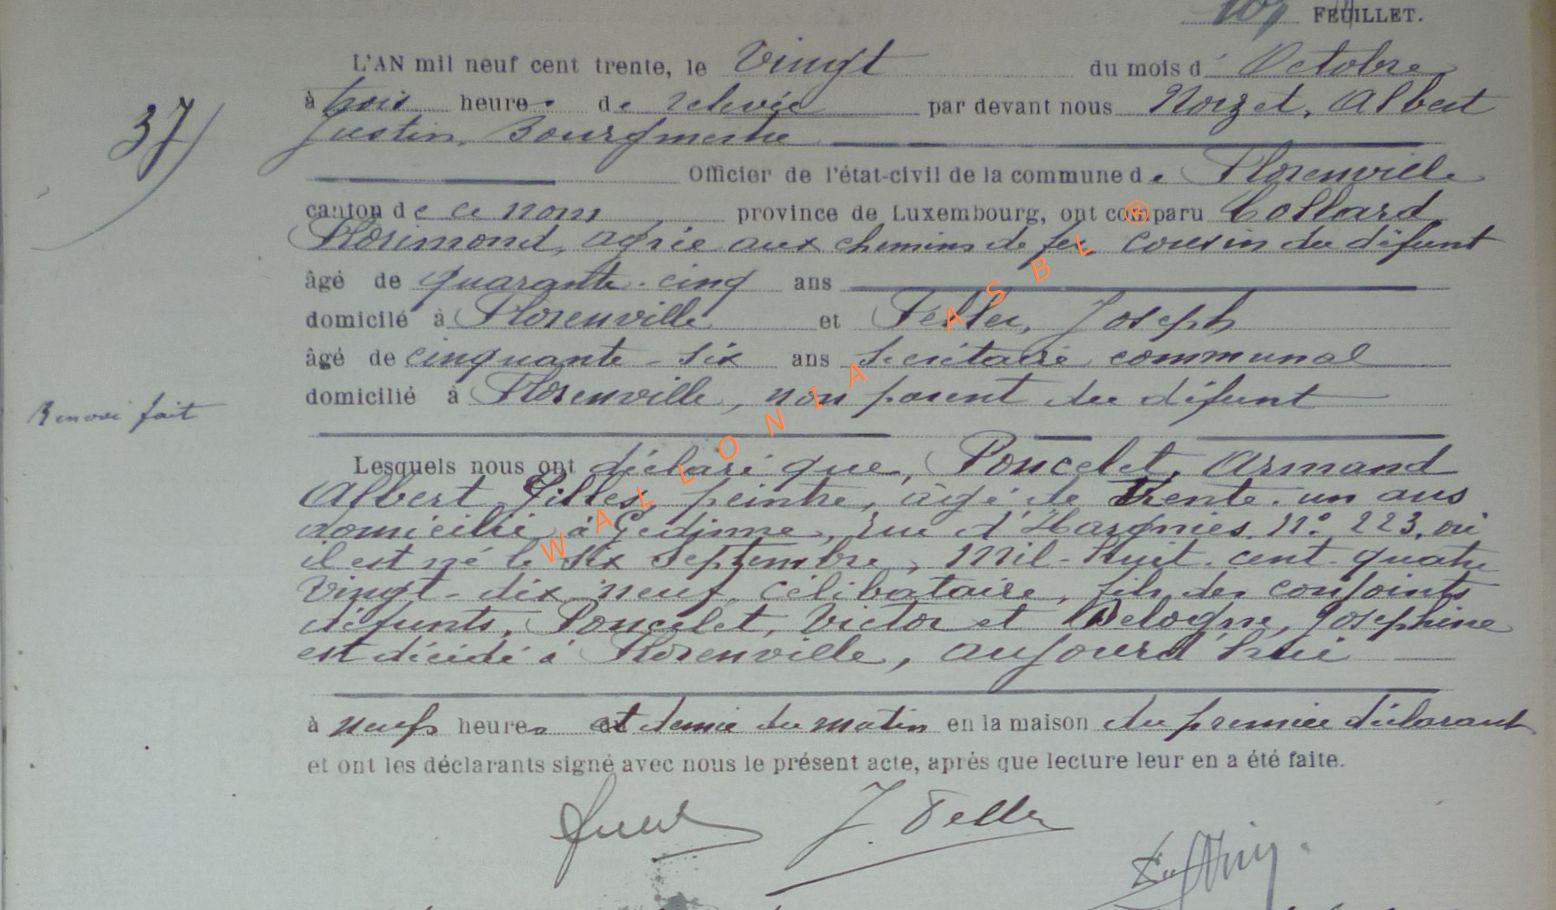 109 FEUILLET.
37
L'AN mil neuf cent trente, le Vingt du mois d' Octobre
à trois heures de relevée par devant nous Noizet, Albert
Justin, Bourgmestre
Officier de l'état-civil de la commune de Florenville
canton de ce nom province de Luxembourg, ont comparu Collard
Florimond, agréé aux chemins de fer, cousin du défunt
âgé de quarante-cinq ans
domicilé à Florenville et Feller, Joseph
âgé de cinquante-six ans secrétaire communal
domicilié à Florenville, non parent du défunt
Renvoi fait
Lesquels nous ont déclaré que, Poncelet, Armand
Albert Gilles, peintre, âgé de trente-un ans
domicilié à Gedinne, rue d'Hargnies, N° 223, où
il est né le six Septembre, mil-huit-cent-quatre
vingt-dix-neuf, célibataire, fils des conjoints
défunts, Poncelet, Victor et Delogne, Joséphine
est décédé à Florenville, aujourd'hui
à neufs heures et demie du matin en la maison du premier déclarant
et ont les déclarants signé avec nous le présent acte, après que lecture leur en a été faite.
J. Feller
WALLONIA ASBL ®